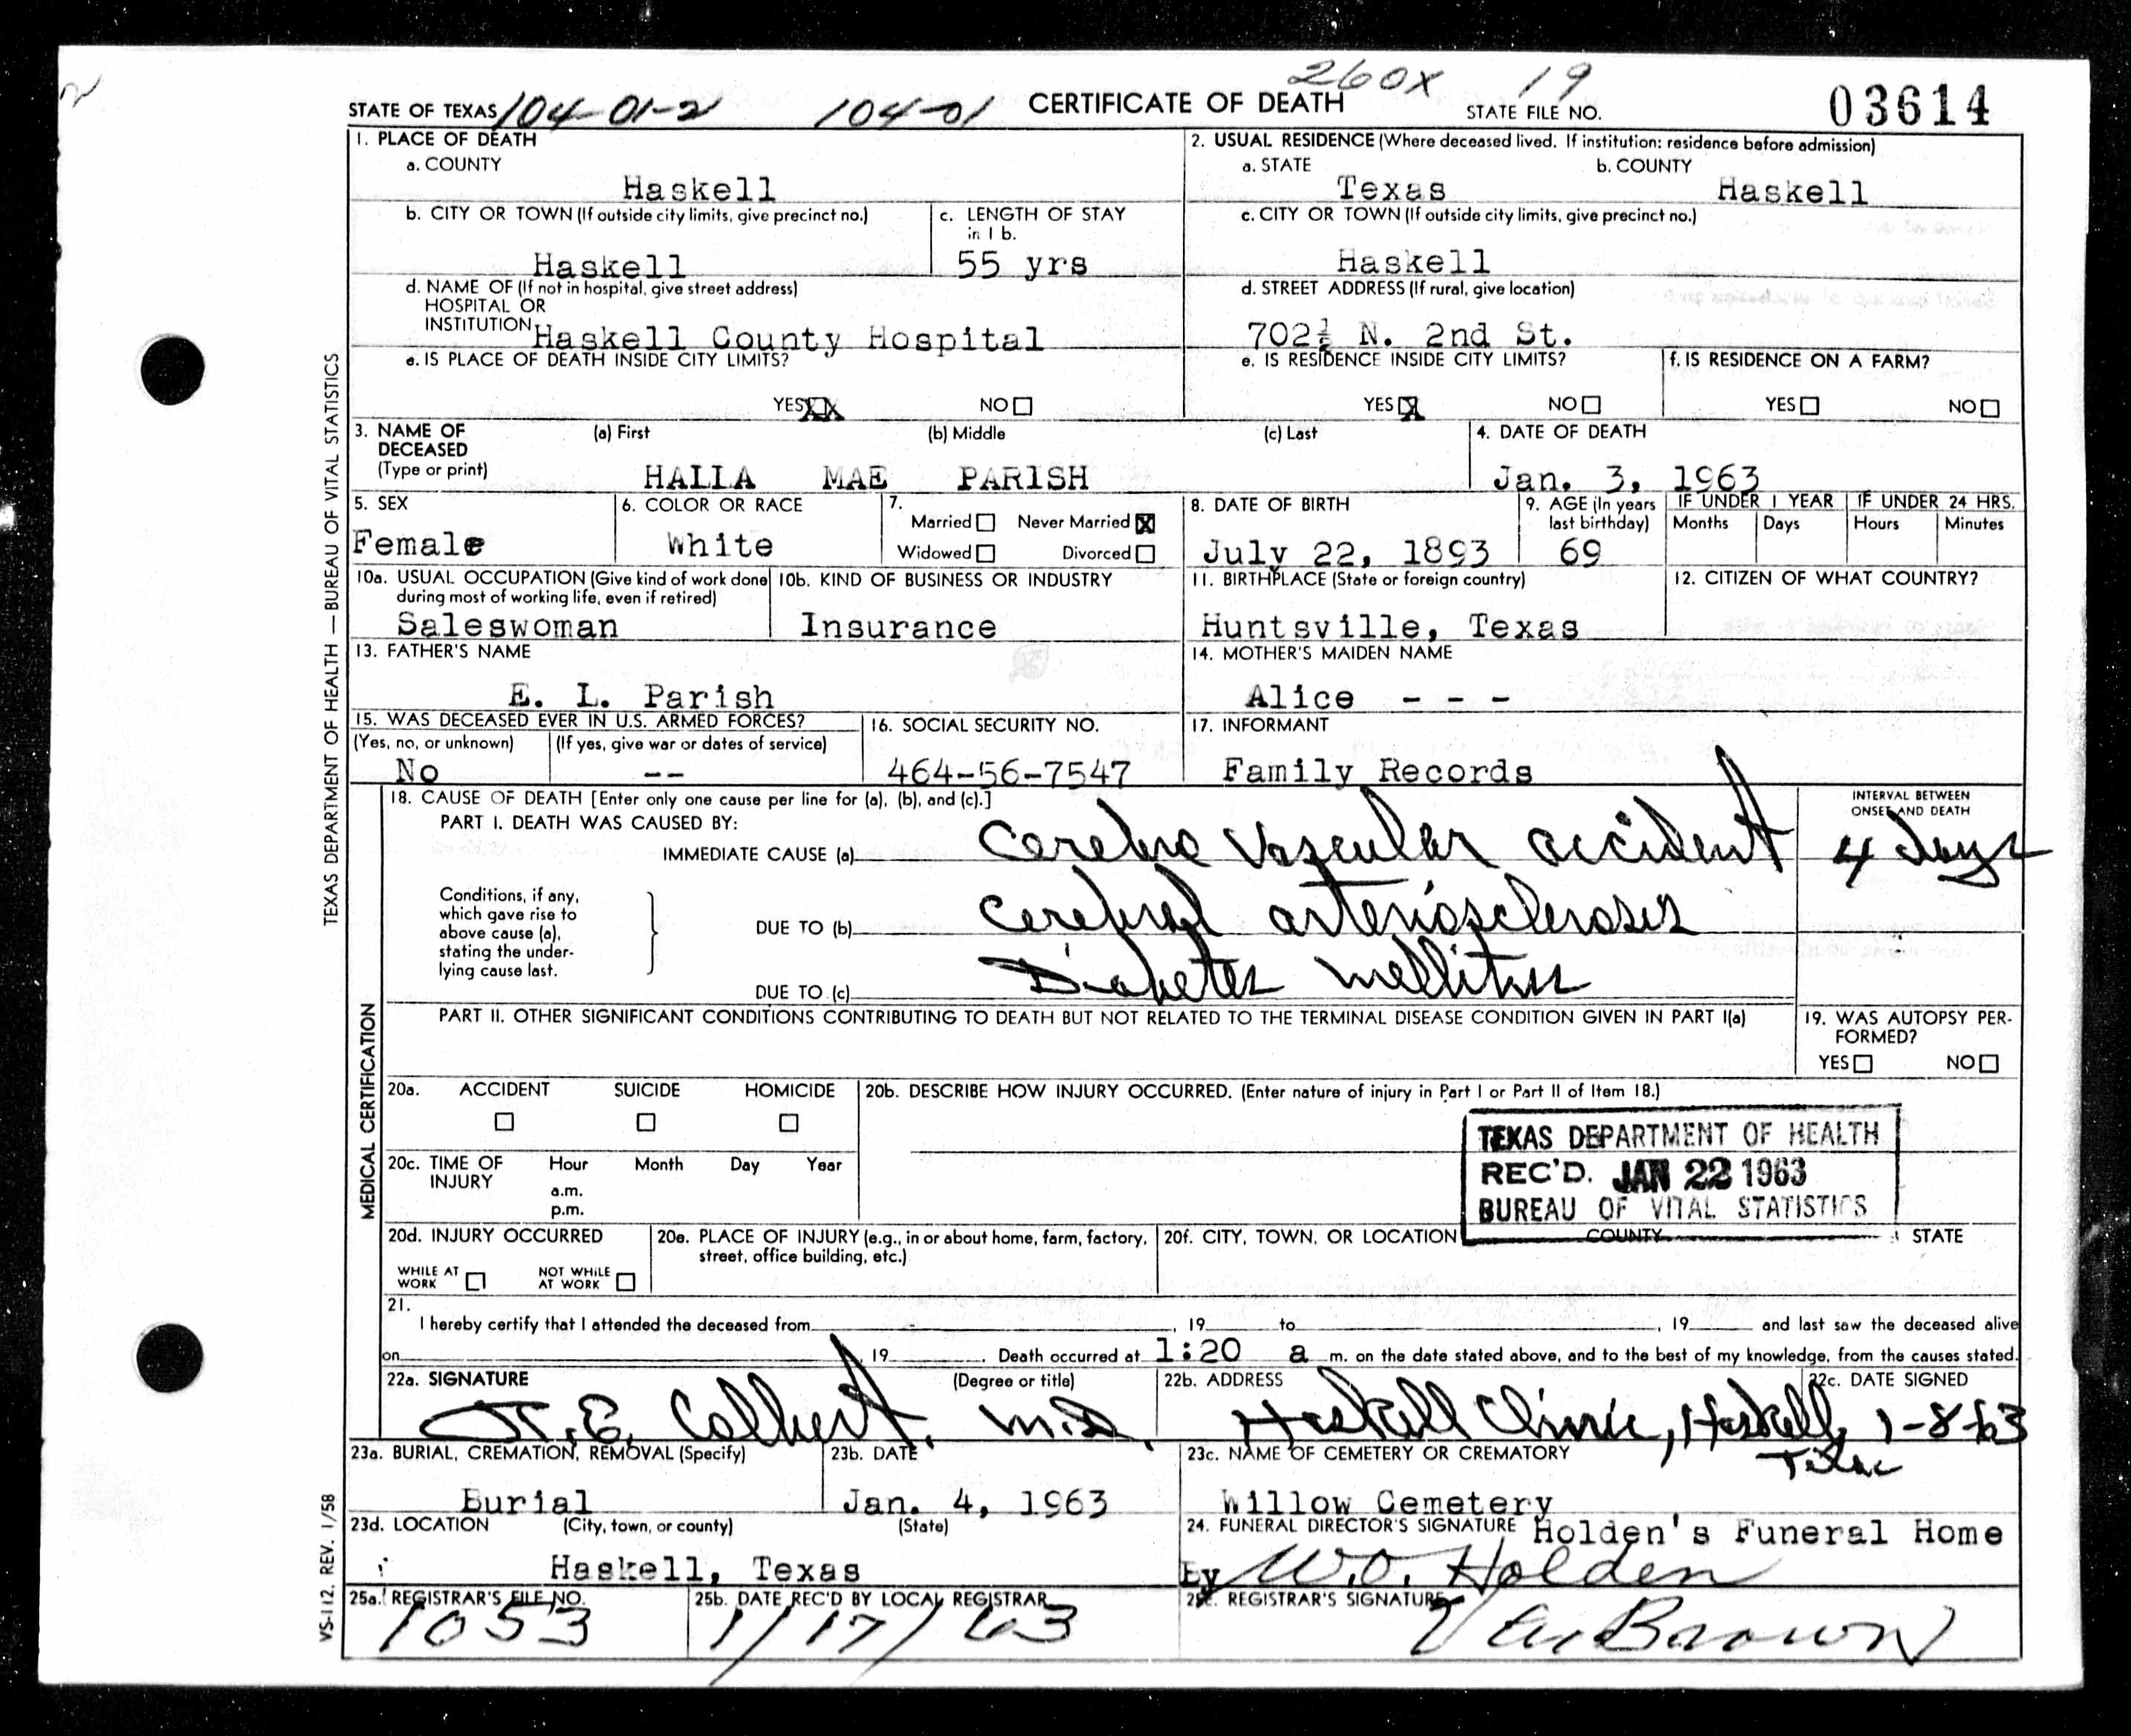 260X 19
STATE OF TEXAS 104-01-2 104-01 CERTIFICATE OF DEATH STATE FILE NO. 03614
1. PLACE OF DEATH
a. COUNTY
Haskell
2. USUAL RESIDENCE (Where deceased lived. If institution: residence before admission)
a. STATE b. COUNTY
Texas Haskell
b. CITY OR TOWN (If outside city limits, give precinct no.)
Haskell
c. LENGTH OF STAY
in 1 b.
55 yrs
c. CITY OR TOWN (If outside city limits, give precinct no.)
Haskell
d. NAME OF (If not in hospital, give street address)
HOSPITAL OR
INSTITUTION Haskell County Hospital
d. STREET ADDRESS (If rural, give location)
702½ N. 2nd St.
e. IS PLACE OF DEATH INSIDE CITY LIMITS?
YES XX NO
e. IS RESIDENCE INSIDE CITY LIMITS?
YES X NO
f. IS RESIDENCE ON A FARM?
YES NO
3. NAME OF
DECEASED
(Type or print)
(a) First (b) Middle (c) Last
HALLA MAE PARISH
4. DATE OF DEATH
Jan. 3, 1963
5. SEX
Female
6. COLOR OR RACE
White
7.
Married Never Married X
Widowed Divorced
8. DATE OF BIRTH
July 22, 1893
9. AGE (In years
last birthday)
69
IF UNDER 1 YEAR
Months Days
IF UNDER 24 HRS.
Hours Minutes
10a. USUAL OCCUPATION (Give kind of work done
during most of working life, even if retired)
Saleswoman
10b. KIND OF BUSINESS OR INDUSTRY
Insurance
11. BIRTHPLACE (State or foreign country)
Huntsville, Texas
12. CITIZEN OF WHAT COUNTRY?
13. FATHER'S NAME
E. L. Parish
14. MOTHER'S MAIDEN NAME
Alice - - -
15. WAS DECEASED EVER IN U.S. ARMED FORCES?
(Yes, no, or unknown) (If yes, give war or dates of service)
No --
16. SOCIAL SECURITY NO.
464-56-7547
17. INFORMANT
Family Records
18. CAUSE OF DEATH [Enter only one cause per line for (a), (b), and (c).]
PART I. DEATH WAS CAUSED BY:
IMMEDIATE CAUSE (a) Cerebro Vascular accident
INTERVAL BETWEEN
ONSET AND DEATH
4 days
Conditions, if any,
which gave rise to
above cause (a),
stating the under-
lying cause last.
DUE TO (b) Cerebral arteriosclerosis
DUE TO (c) Diabetes mellitus
PART II. OTHER SIGNIFICANT CONDITIONS CONTRIBUTING TO DEATH BUT NOT RELATED TO THE TERMINAL DISEASE CONDITION GIVEN IN PART I(a)
19. WAS AUTOPSY PER-
FORMED?
YES NO
20a. ACCIDENT SUICIDE HOMICIDE
20b. DESCRIBE HOW INJURY OCCURRED. (Enter nature of injury in Part I or Part II of Item 18.)
TEXAS DEPARTMENT OF HEALTH
REC'D. JAN 22 1963
BUREAU OF VITAL STATISTICS
20c. TIME OF
INJURY
Hour Month Day Year
a.m.
p.m.
20d. INJURY OCCURRED
WHILE AT
WORK
NOT WHILE
AT WORK
20e. PLACE OF INJURY (e.g., in or about home, farm, factory,
street, office building, etc.)
20f. CITY, TOWN, OR LOCATION COUNTY STATE
21.
I hereby certify that I attended the deceased from , 19 to , 19 and last saw the deceased alive
on , 19 . Death occurred at 1:20 a m. on the date stated above, and to the best of my knowledge, from the causes stated.
22a. SIGNATURE (Degree or title)
T. E. Colbert, M.D.
22b. ADDRESS
Haskell Clinic, Haskell,
Texas
22c. DATE SIGNED
1-8-63
23a. BURIAL, CREMATION, REMOVAL (Specify)
Burial
23b. DATE
Jan. 4, 1963
23c. NAME OF CEMETERY OR CREMATORY
Willow Cemetery
23d. LOCATION (City, town, or county) (State)
Haskell, Texas
24. FUNERAL DIRECTOR'S SIGNATURE Holden's Funeral Home
By W.O. Holden
25a. REGISTRAR'S FILE NO.
1053
25b. DATE REC'D BY LOCAL REGISTRAR
1/17/63
25c. REGISTRAR'S SIGNATURE
Brown
TEXAS DEPARTMENT OF HEALTH — BUREAU OF VITAL STATISTICS
MEDICAL CERTIFICATION
VS-112. REV. 1/58